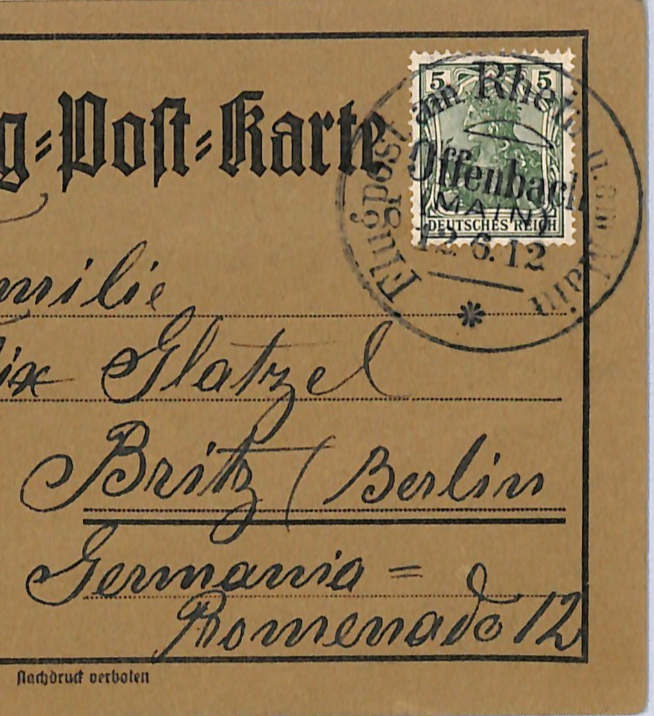 g=Post=Karte
5 5
DEUTSCHES REICH
Flugpost am Rhein u. am Main
Offenbach
(MAIN)
12.6.12
milie
ix Glatzel
Britz (Berlin
Germania=
Promenade 12
Nachdruck verboten